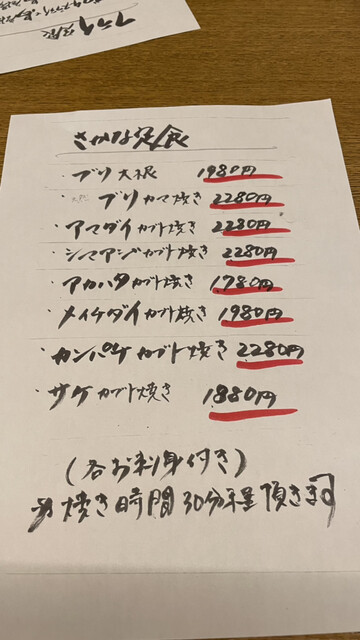 フライ定食
さかな定食
・ブリ大根 1980円
・ブリカマ焼き 2280円
・アマダイカブト焼き 2280円
・シマアジカブト焼き 2280円
・アカハタカブト焼き 1780円
・メイチダイカブト焼き 1980円
・カンパチカブト焼き 2280円
・サケカブト焼き 1880円
(各お刺身付き)
※焼き時間30分程頂きます